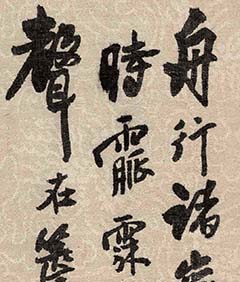 舟行諸
時霢霂
聲在